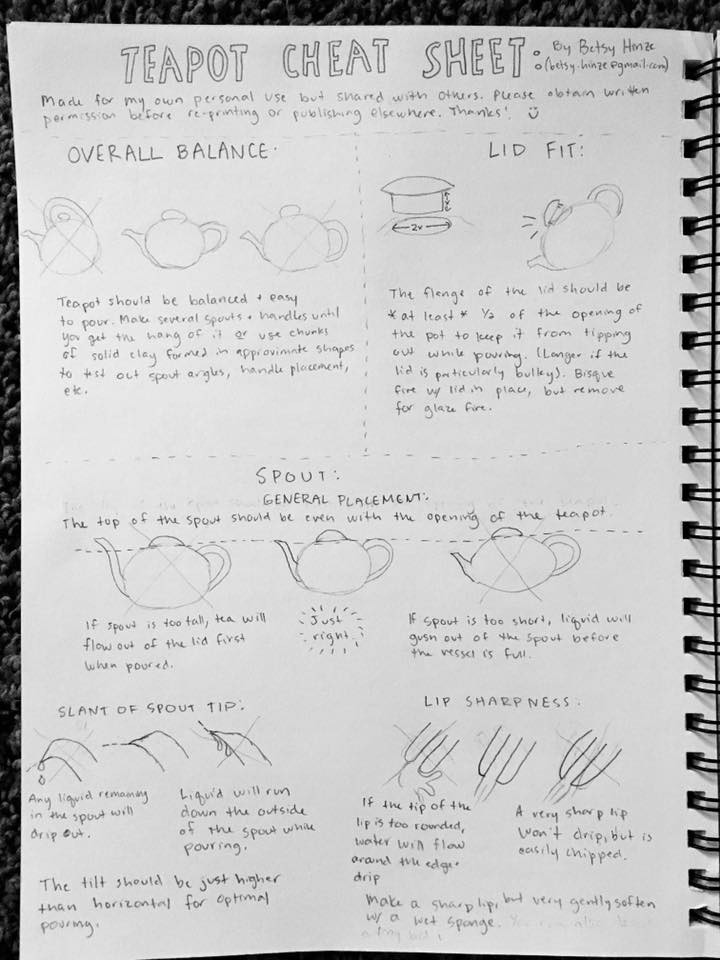 TEAPOT CHEAT SHEET: By Betsy Hinze
(betsy.hinze@gmail.com)
Made for my own personal use but shared with others. Please obtain written
permission before re-printing or publishing elsewhere. Thanks!
OVERALL BALANCE:
Teapot should be balanced + easy
to pour. Make several spouts + handles until
you get the hang of it or use chunks
of solid clay formed in approximate shapes
to test out spout angles, handle placement,
etc.
LID FIT:
2x
The flange of the lid should be
*at least* 1/2 of the opening of
the pot to keep it from tipping
out while pouring. (Longer if the
lid is particularly bulkey). Bisque
fire w/ lid in place, but remove
for glaze fire.
SPOUT:
GENERAL PLACEMENT:
The top of the spout should be even with the opening of the teapot.
If spout is too tall, tea will
flow out of the lid first
when poured.
Just
right
If spout is too short, liquid will
gush out of the spout before
the vessel is full.
SLANT OF SPOUT TIP:
Any liquid remaining
in the spout will
drip out.
Liquid will run
down the outside
of the spout while
pouring.
The tilt should be just higher
than horizontal for optimal
pouring.
LIP SHARPNESS:
If the tip of the
lip is too rounded,
water will flow
around the edge +
drip
A very sharp lip
won't drip, but is
easily chipped.
Make a sharp lip, but very gently soften
w/ a wet sponge. You can also